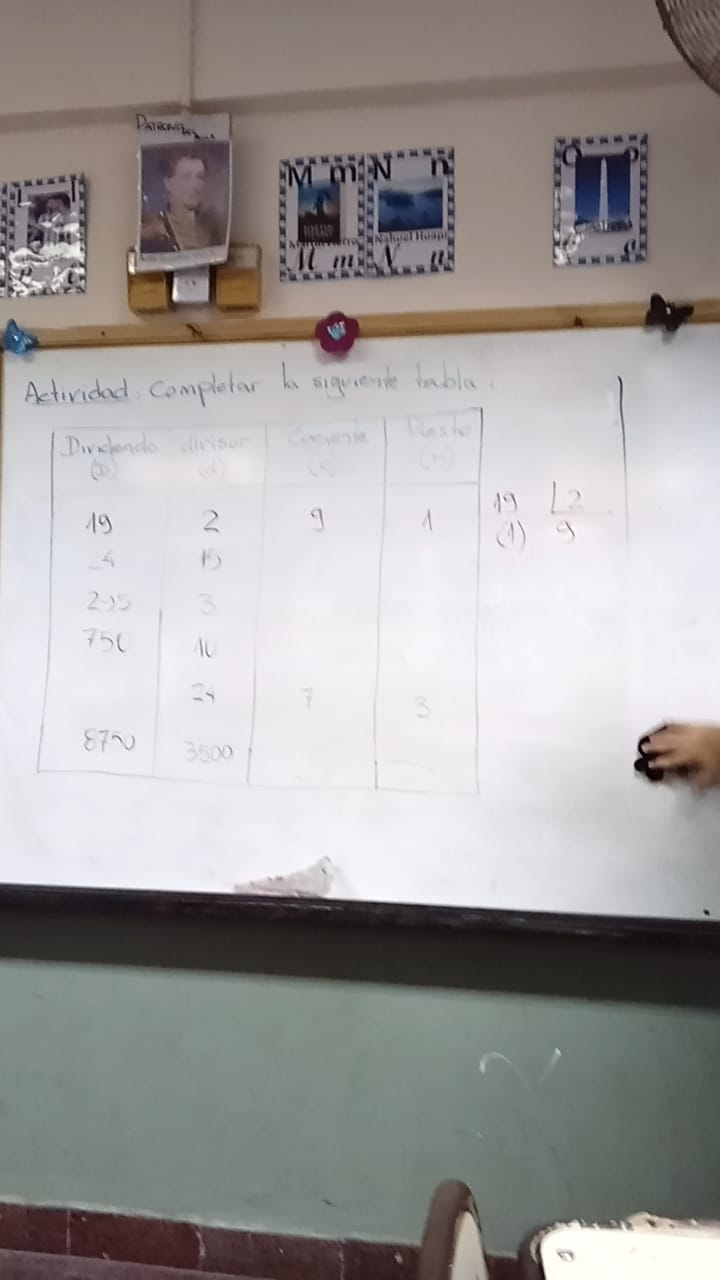 PATRONO
M m N n
Nahuel Huapi
M m N n
O o
Actividad: Completar la siguiente tabla:
Dividendo divisor Cociente Resto
(D) (d) (c) (r)
19 2 9 1 19 2
(1) 9
15
3
750 10
24 7 3
8750 3500